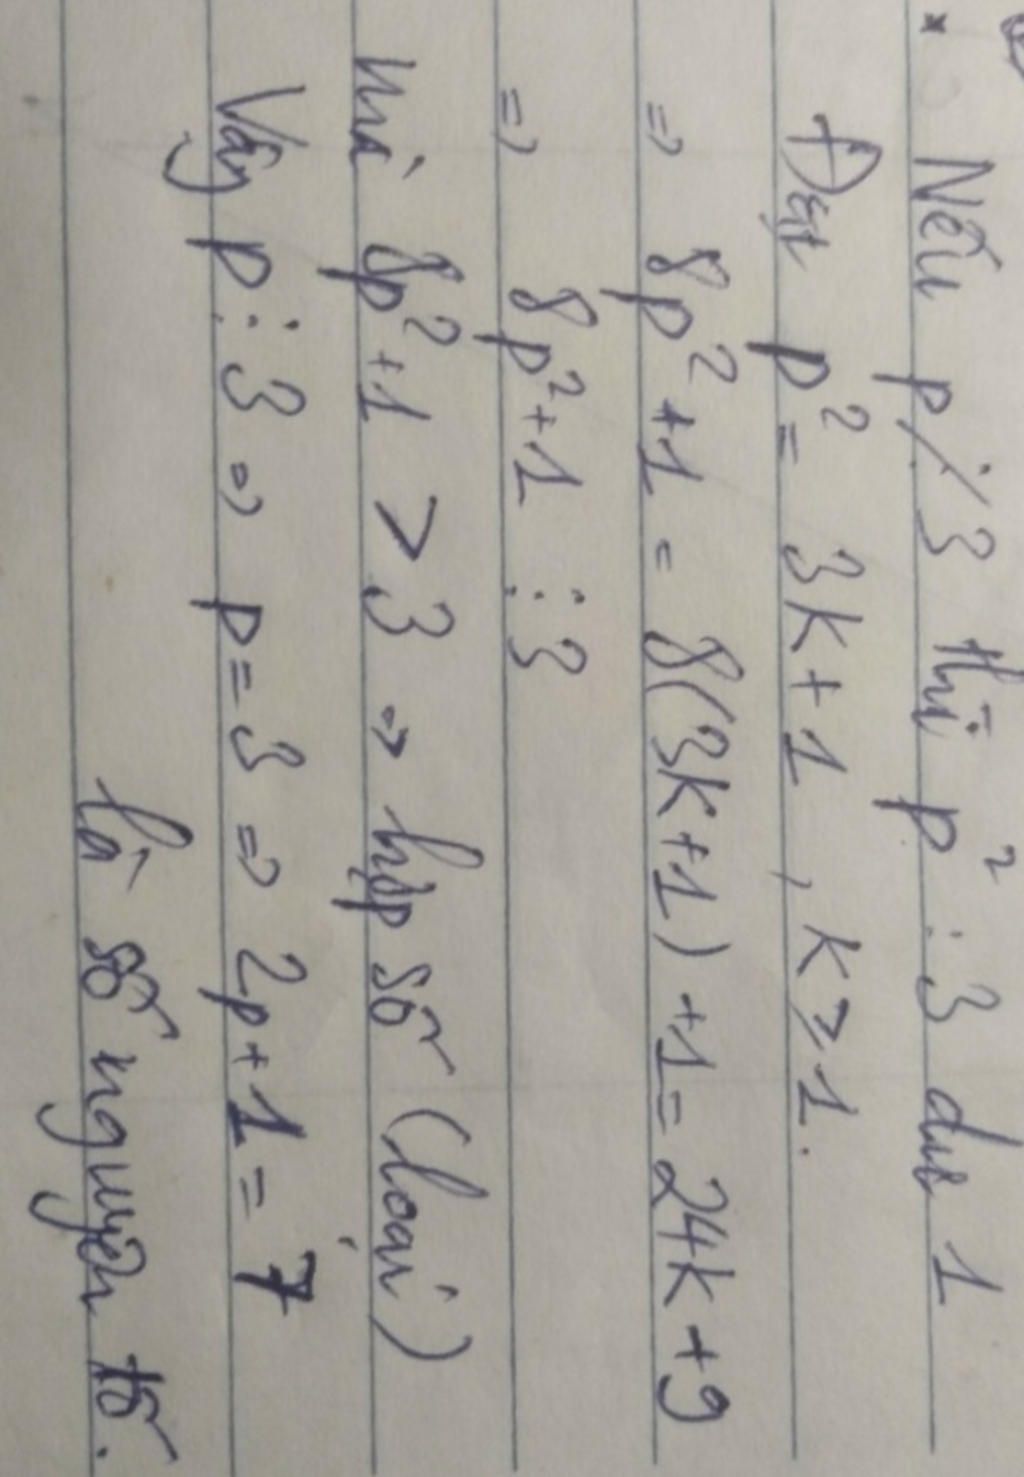 • Nếu p ⋮̸ 3 thì p² : 3 dư 1
Đặt p² = 3k + 1 , k ⩾ 1.
=> 8p² + 1 = 8(3k+1) + 1 = 24k + 9
=> 8p² + 1 ⋮ 3
mà 8p² + 1 > 3 => hợp số (loại)
Vậy p ⋮ 3 => p = 3 => 2p + 1 = 7
là số nguyên tố.